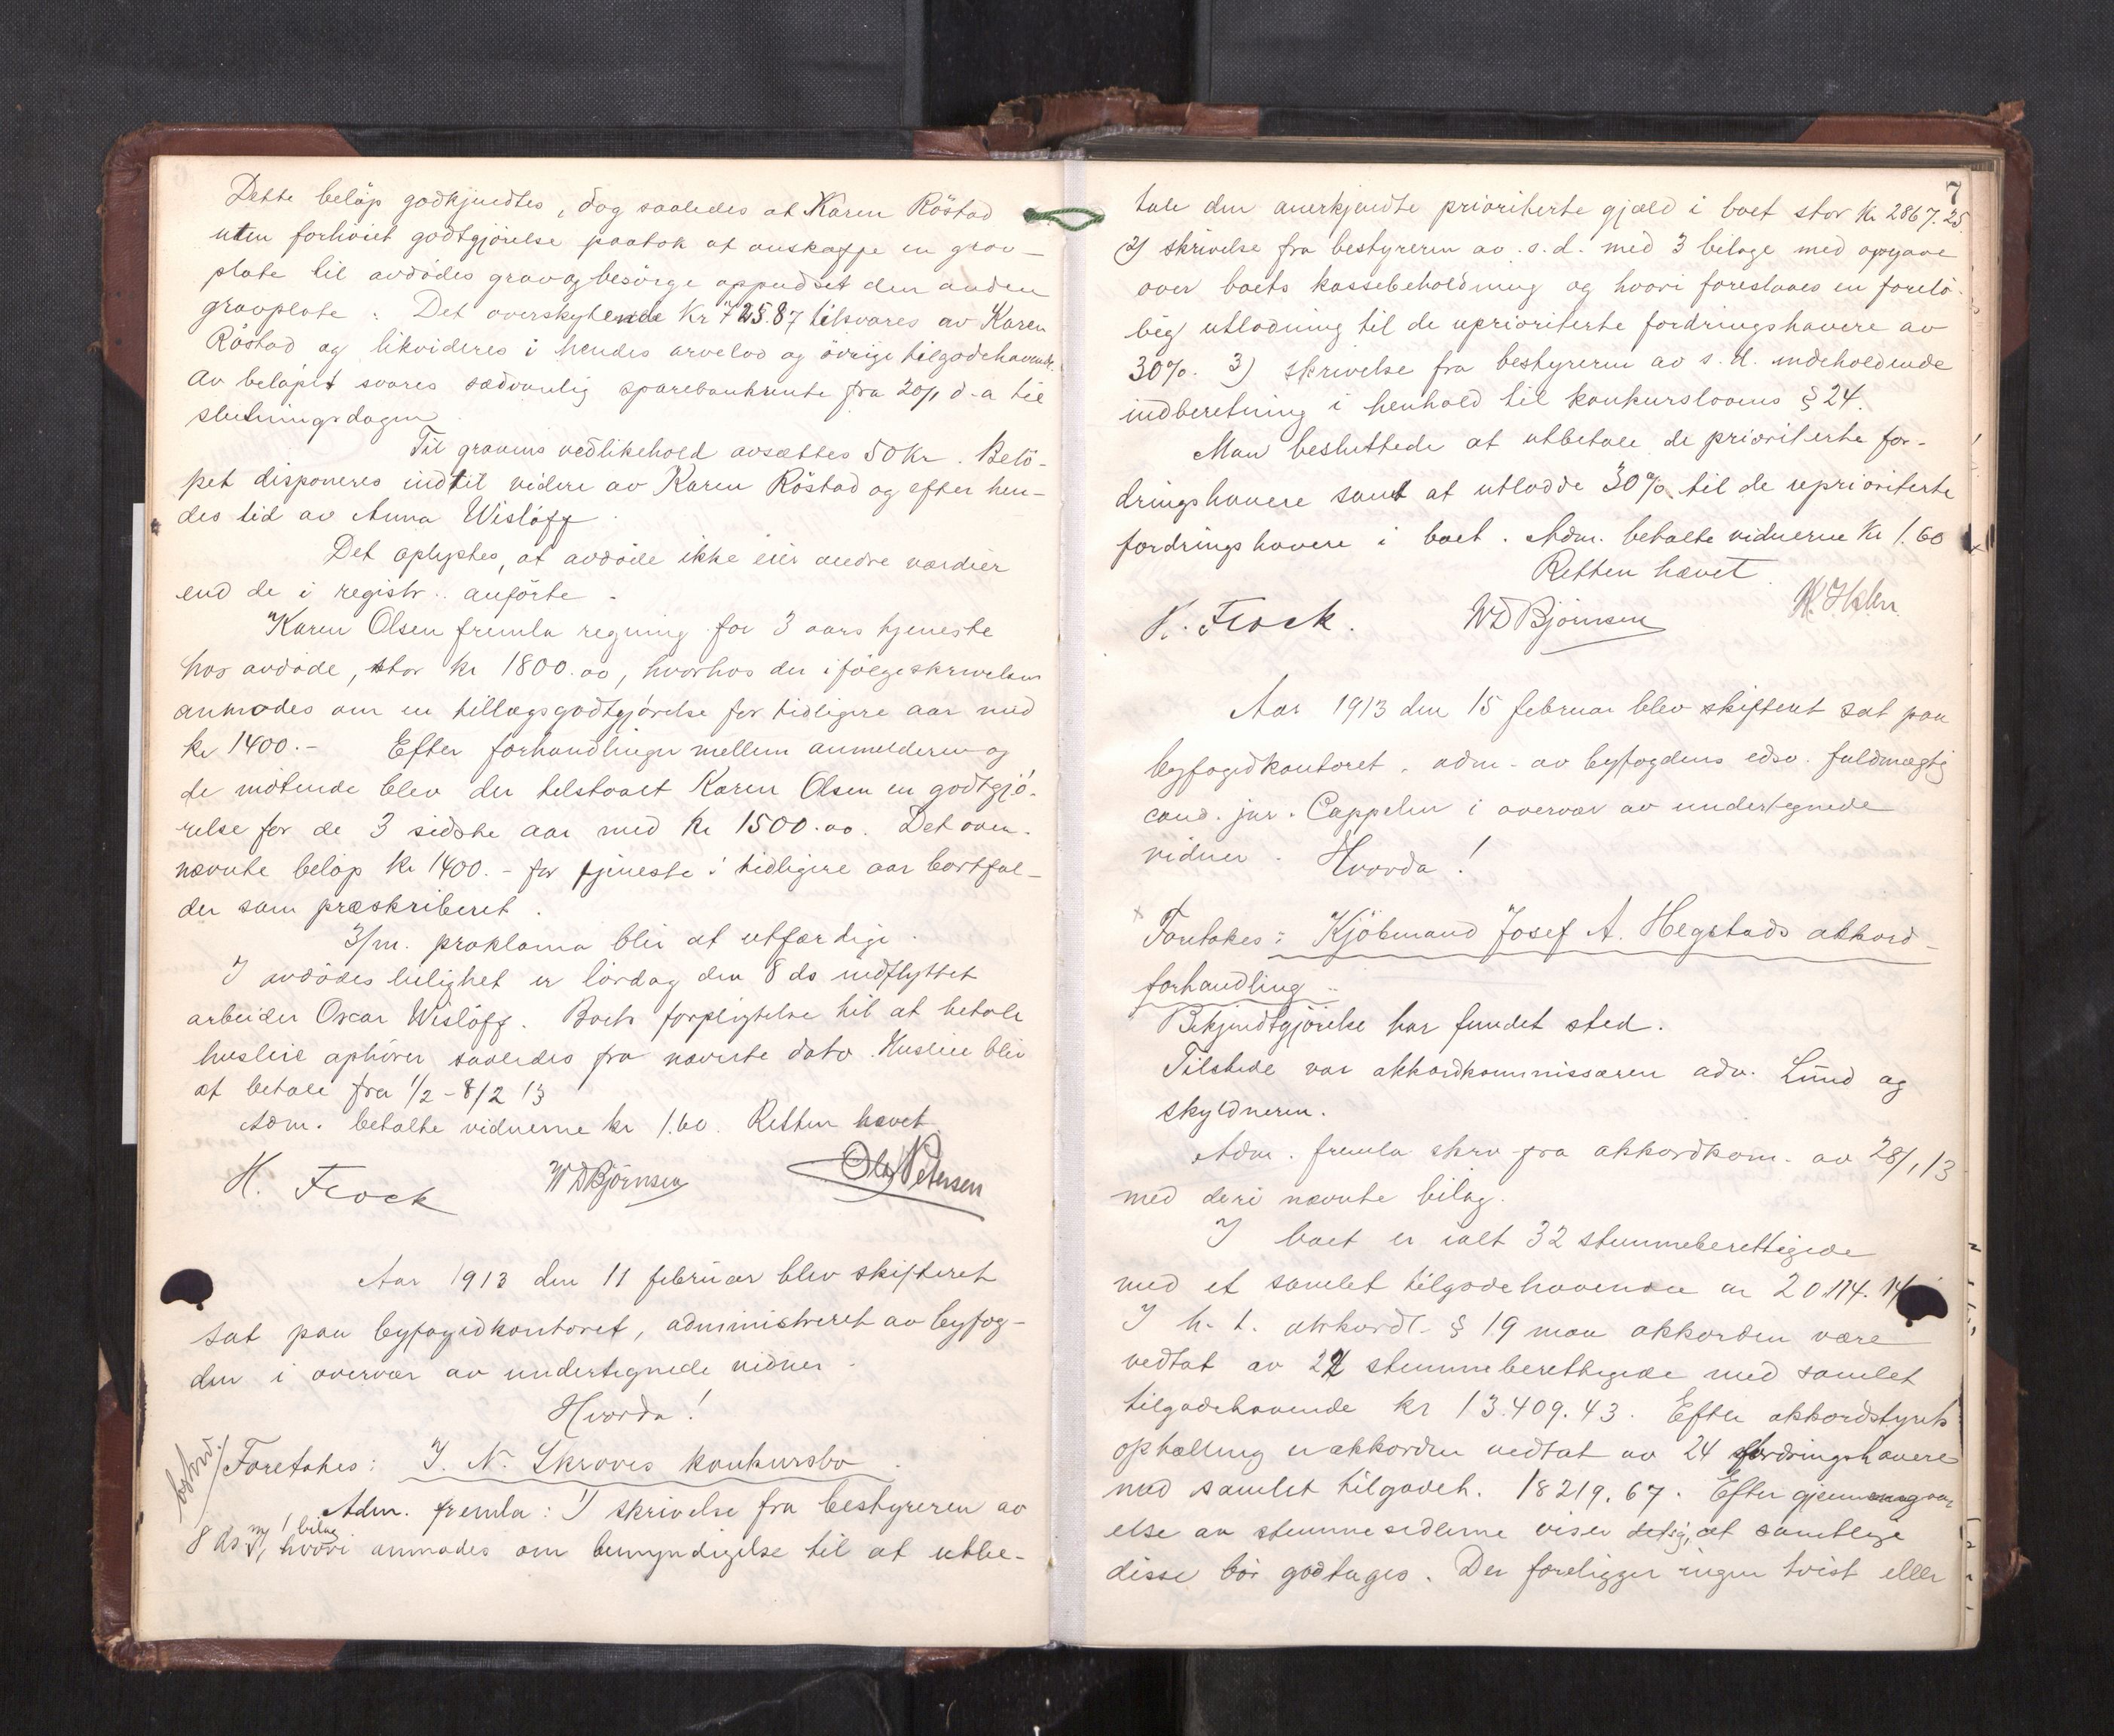 Dette beløp godkjendtes, dog saaledes at Karen Röstad
uten forhöiet godtgjörelse paatok at anskaffe en grav-
plate til avdödes grav og besörge oppudset den anden
gravplate. Det overskytende Kr 725.87 tilsvares av Karen
Röstad og likvideres i hendes arvelod og övrige tilgodehavende.
Av beløpet svares sedvanlig sparebankrente fra 20/1 d.a til
slutningsdagen.
Til gravens vedlikehold avsættes 50 Kr. Belö-
pet disponeres indtil videre av Karen Röstad og efter hen-
des tid av Anna Wislöff.
Det oplystes, at avdöde ikke eier andre værdier
end de i registr. anförte.
Karen Olsen fremla regning for 3 aars tjeneste
hos avdöde, stor kr 1800.00, hvorhos der i følgeskrivelsen
anmodes om en tillægsgodtgjörelse for tidligere aar med
kr 1400.- Efter forhandlinger mellem anmelderen og
de mötende blev der tilstaaet Karen Olsen en godtgjö-
relse for de 3 sidste aar med kr 1500.00. Det oven-
nævnte belöp kr 1400.- for tjeneste i tidligere aar bortfal-
der som præskriberet.
3/m. proklama blir at utfærdige.
I avdödes leilighet er lördag den 8 ds indflyttet
arbeider Oscar Wislöff. Boets forpligtelse til at betale
husleie ophörer saaledes fra nævnte dato. Husleie blir
at betale fra 1/2 - 8/2 13
Adm. betalte vidnerne kr 1.60. Retten hævet.
H. Frock WDBjörnsen Olaf Petersen
Aar 1913 den 11 februar blev skifteret
sat paa byfogidkontoret, administreret av byfog-
den i overvær av undertegnede vidner.
Hvorda!
Foretokes: J. N. Skroves konkursbo.
Adm. fremla: 1) skrivelse fra bestyreren av
8 ds m/ 1 bilag, hvori anmodes om bemyndigelse til at utbe-
7
tale den anerkjendte prioriterte gjæld i boet stor kr. 2867.25.
2) skrivelse fra bestyreren av s.d. med 3 bilage med opgave
over boets kassebeholdning og hvori foreslaaes en forelö-
big utlodning til de uprioriterte fordringshavere av
30%. 3) skrivelse fra bestyreren av s.d. indeholdende
indberetning i henhold til konkurslovens § 24.
Man besluttede at utbetale de prioriterte for-
dringshavere samt at utlodde 30% til de uprioriterte
fordringshavere i boet. Adm. betalte vidnerne Kr 1.60
Retten hævet.
H. Frock. WDBjörnsen
Aar 1913 den 15 februar blev skifteret sat paa
byfogidkontoret, adm. av byfogdens edsv. fuldmægtig
cand. jur. Cappelen i overvær av undertegnede
vidner. Hvorda!
Foretokes: Kjöbmand Josef A. Hegstads akkord-
forhandling.
Bekjendtgjörelse har fundet sted.
Tilstede var akkordkommissæren adv. Lund og
skyldneren.
Adm. fremla skriv fra akkordkom. av 28/1 13
med deri nævnte bilag.
I boet er ialt 32 stemmeberettigede
med et samlet tilgodehavende av 20.114.14
I h. t. akkordl. § 19 maa akkorden være
vedtat av 22 stemmeberettigede med samlet
tilgodehavende kr 13.409.43. Efter akkordstyrets
optælling er akkorden vedtat av 24 fordringshavere
med samlet tilgodeh. 18219.67. Efter gjennemgaa-
else av stemmesedlerne viser det sig, at samtlige
disse bör godtages. Der foreligger ingen tvist eller